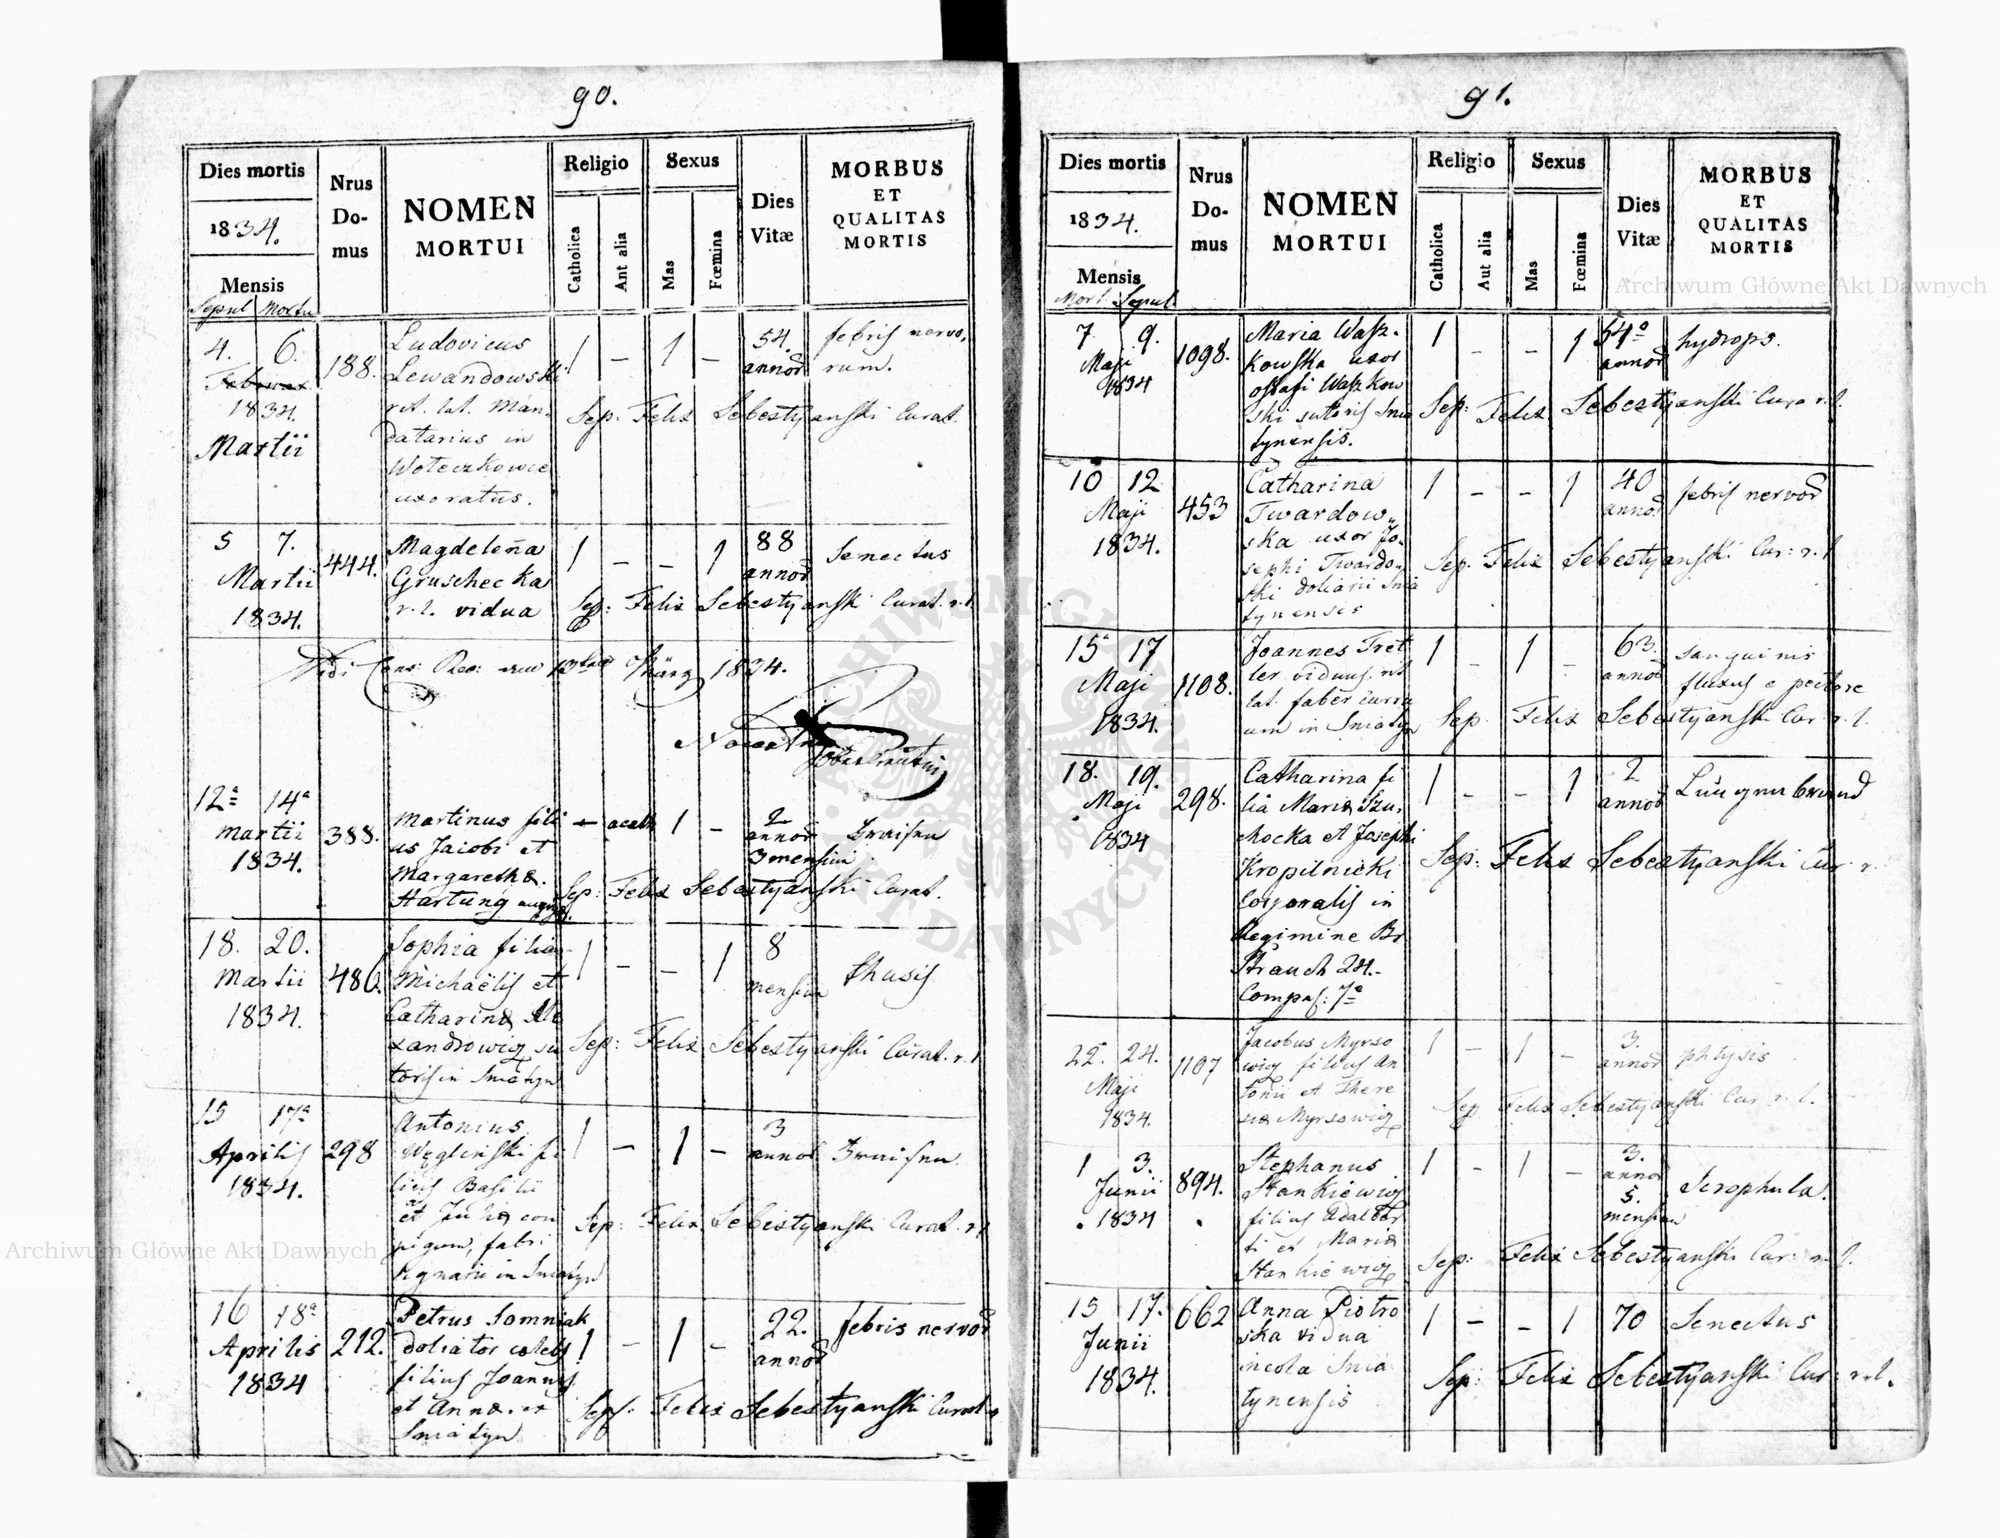 90.
Dies mortis
1834.
Mensis
Sepul Mortu
Nrus
Do-
mus
NOMEN
MORTUI
Religio
Catholica
Aut alia
Sexus
Mas
Fœmina
Dies
Vitæ
MORBUS
ET
QUALITAS
MORTIS
4. 6.
Februar
1834.
Martii
188.
Ludovicus
Lewandowski
rit. lat. Man-
datarius in
Woleczkowce
uxoratus.
1 – 1 –
54.
annor
febris nervo,
rum.
Sep: Felix Sebestyanski Curat.
5 7.
Martii
1834.
444.
Magdelena
Gruschecka
r. l. vidua
1 – – 1
88
annor
Senectus
Sep: Felix Sebestyanski Curat. r. l.
März 1834.
12ª 14ª
Martii
1834.
388.
Martinus fili
us Jacobi et
Margarethæ
Hartung
– acath 1 –
2
annor
3 mensium
Fraisen
Sep: Felix Sebestyanski Curat.
18. 20.
Martii
1834.
486.
Sophia filia
Michaëlis et
Catharinæ Ale
xandrowicz su
toris in Sniatyn
1 – – 1
8
mensium
thusis
Sep: Felix Sebestyanski Curat. r. l.
15 17ª
Aprilis
1834.
298
Antonius
Węgliński fi
lius Basilii
et Juliæ con
jugum, fabri
lignarii in Sniatyn
1 – 1 –
3
annor
Fraisen
Sep: Felix Sebestyanski Curat. r. l.
16 18ª
Aprilis
1834
212.
Petrus Somniak
doliator celebs
filius Joannis
et Annæ ex
Sniatyn
1 – 1 –
22.
annor
febris nervor
Sep. Felix Sebestyanski Curat.
91.
Dies mortis
1834.
Mensis
Mort. Sepul.
Nrus
Do-
mus
NOMEN
MORTUI
Religio
Catholica
Aut alia
Sexus
Mas
Fœmina
Dies
Vitæ
MORBUS
ET
QUALITAS
MORTIS
7. 9.
Maji
1834
1098.
Maria Wasz-
kowska uxor
Ostafi Waszkow
ski sutoris Snia
tynensis.
1 – – 1
54ª
annor
hydrops.
Sep: Felix Sebestyanski Cura r. l.
10 12
Maji
1834.
453
Catharina
Twardow„
ska uxor Jo-
sephi Twardo-
ski doliarii Snia
tynensis
1 – – 1
40
annor
febris nervor
Sep. Felix Sebestyanski Cur: r. l.
15 17
Maji
1834.
1108.
Joannes Tret
ler viduus. rit
lat. faber curru
um in Sniatyn
1 – 1 –
63.
annor
sanguinis
fluxus e pectore
Sep. Felix Sebestyanski Cur r. l.
18. 19.
Maji
1834
298.
Catharina fi
lia Mariæ Szu.
chocka et Josephi
Kropilnicki
Corporalis in
Regimine Br
Strauch 24.-
Compas: 7ª
1 – – 1
2
annor
Lungenbrand
Sep: Felix Sebestyanski Cur r.
22 24.
Maji
1834.
1107
Jacobus Myrso
wicz filius An
tonii et There
siæ Myrsowicz
1 – 1 –
3.
annor
phtysis
Sep Felix Sebestyanski Cur r. l.
1 3.
Junii
1834
894.
Stephanus
Stankiewicz
filius Adalber
ti et Mariæ
Stankiewicz
1 – 1 –
3.
annor
5.
mensium
Scrophula.
Sep: Felix Sebestyanski Cur: r. l.
15 17.
Junii
1834.
662
Anna Piotro
ska vidua
incola Snia
tynensis
1 – – 1
70
Senectus
Sep: Felix Sebestyanski Cur: r. l.
Archiwum Główne Akt Dawnych
Archiwum Główne Akt Dawnych
ARCHIWUM GŁÓWNE AKT DAWNYCH